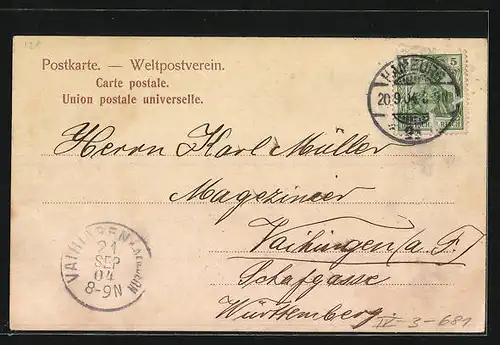 Postkarte. — Weltpostverein.
Carte postale.
Union postale universelle.
5
HAMBURG
20.9.04.
Herrn Karl Müller
Magezinier
Vaihingen (a. F.)
Schafgasse
Württemberg.
VAIHINGEN
21
SEP
04
8-9N
IV-3-681